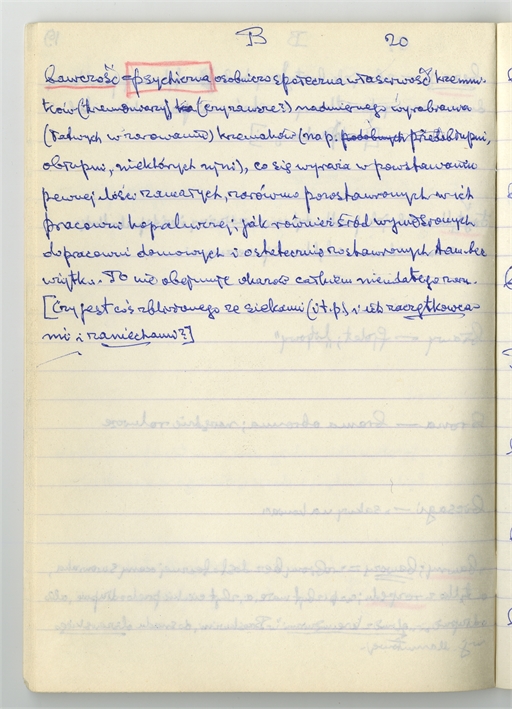 B 20
bawczość = psychiczna osobniczo społeczna właściwość krzemni-
ków (krzemieniarzy) (czy zawsze?) nadmiernego wyrabiania
(łatwych w zarowaniu) krzemaków (nap. podobnych przedsłupni,
obłupni, niektórych rylni), co się wyraża w powstawaniu
pewnej ilości zawałych, zarówno pozostawionych w ich
pracowni kopalnianej, jak również i tych wyniesionych
do pracowni domowych i ostatecznie zostawionych tam bez
użytku. To nie obejmuje okazów całkiem nieudałego
[Czy jest coś zbliżonego ze siekami (i t.p.) i ich zaczątkowca-
mi i zaniechami?]